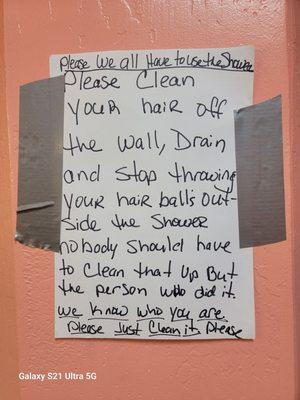 Please We all Have to use the Shower
Please Clean
your hair off
the wall, Drain
and stop throwing
your hair balls out-
side the shower
nobody should have
to clean that up But
the person who did it.
we know who you are.
Please Just Clean it, Please
Galaxy S21 Ultra 5G